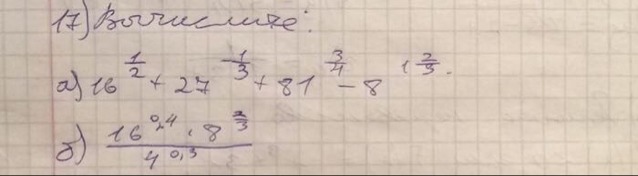 17) Вычислите:
а) 16^{\frac{1}{2}} + 27^{\frac{1}{3}} + 81^{\frac{3}{4}} - 8^{1\frac{2}{3}}.
б) \frac{16^{0,4} \cdot 8^{\frac{2}{3}}}{4^{0,3}}